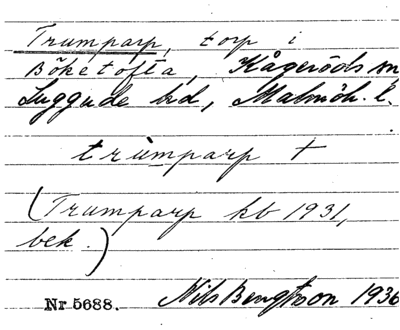 Trumparp, torp i
Böketofta, Kågeröds sn
Luggude hd, Malmöh. l.
trùmparp +
(Trumparp kb 1931,
bek.)
Nr 5688. Nils Bengtsson 1936